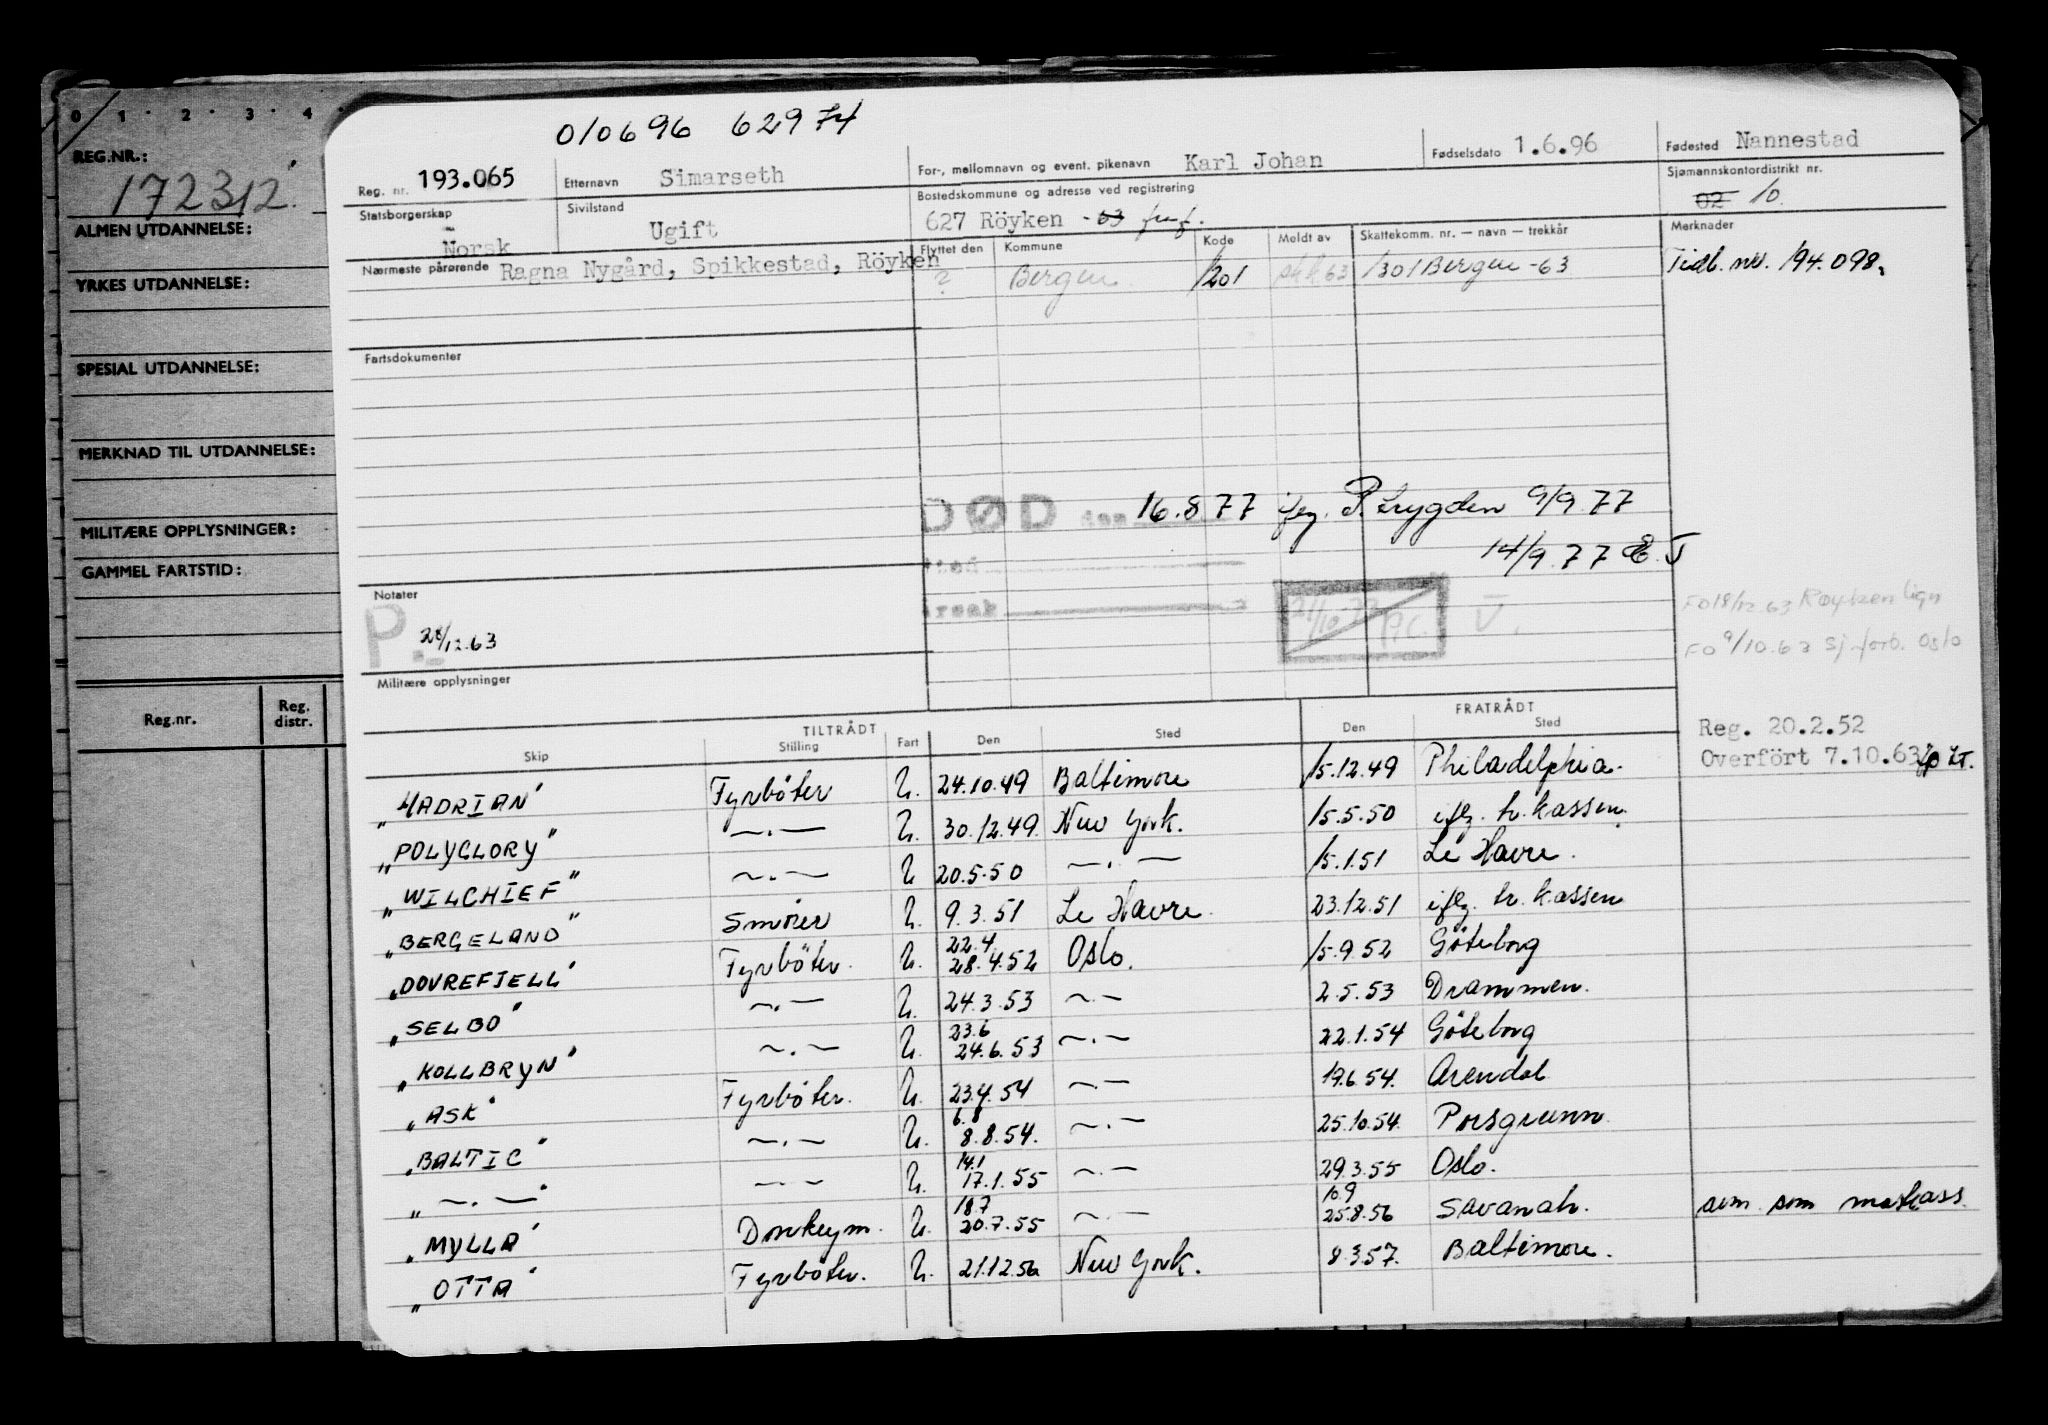 0 1 2 3 4
REG.NR.:
172312.
ALMEN UTDANNELSE:
YRKES UTDANNELSE:
SPESIAL UTDANNELSE:
MERKNAD TIL UTDANNELSE:
MILITÆRE OPPLYSNINGER:
GAMMEL FARTSTID:
Reg.nr. Reg. distr.
010696 62974
Reg. nr. 193.065 Etternavn Simarseth For-, mellomnavn og event. pikenavn Karl Johan Fødselsdato 1.6.96 Fødested Nannestad
Statsborgerskap Norsk Sivilstand Ugift Bostedskommune og adresse ved registrering 627 Röyken -63 Sjømannskontordistrikt nr. 02 10.
Nærmeste pårørende Ragna Nygård, Spikkestad, Röyken
Flyttet den Kommune Kode Meldt av Skattekomm. nr. — navn — trekkår Merknader
? Bergen 1201 63 1301 Bergen -63 Tidl. nr. 194.098.
Fartsdokumenter
DØD den 16.8 77 P. trygden 9/9 77
14/9.77 E.J
Sted
Årsak
21/10-77
V.
Notater
P. 28/12.63
FO 18/12 63 Røyken lign
FO 9/10.63 Sj.forb. Oslo
Militære opplysninger
Reg. 20.2.52
Overfört 7.10.63
TILTRÅDT FRATRÅDT
Skip Stilling Fart Den Sted Den Sted
"HADRIAN" Fyrböter U. 24.10.49 Baltimore 15.12.49 Philadelphia.
"POLYGLORY" —.— U. 30.12.49. New York. 15.5.50 iflg. tr. kassen.
"WILCHIEF" —.— U 20.5.50 —.— 15.1.51 Le Havre.
"BERGELAND" Smörer U. 9.3.51 Le Havre. 23.12.51 iflg. tr. kassen
"DOVREFJELL" Fyrböter. U. 22.4 28.4.52 Oslo. 15.9.52 Göteborg
"SELBO" —.— U. 24.3.53 —.— 2.5.53 Drammen.
"KOLLBRYN" —.— U. 23.6 24.6.53 —.— 22.1.54 Göteborg
"ASK" Fyrböter. U. 23.4.54 —.— 19.6.54. Arendal
"BALTIC" —.— U. 6.8 8.8.54. —.— 25.10.54. Porsgrunn.
" —.— " —.— U. 14.1 17.1.55 —.— 29.3.55 Oslo.
"MYLLA" Donkeym. U. 18.7 20.7.55 —.— 10.9 25.8.56 Savanah. som motass.
"OTTA" Fyrböter. U. 21.12.56 New York. 8.3.57. Baltimore.